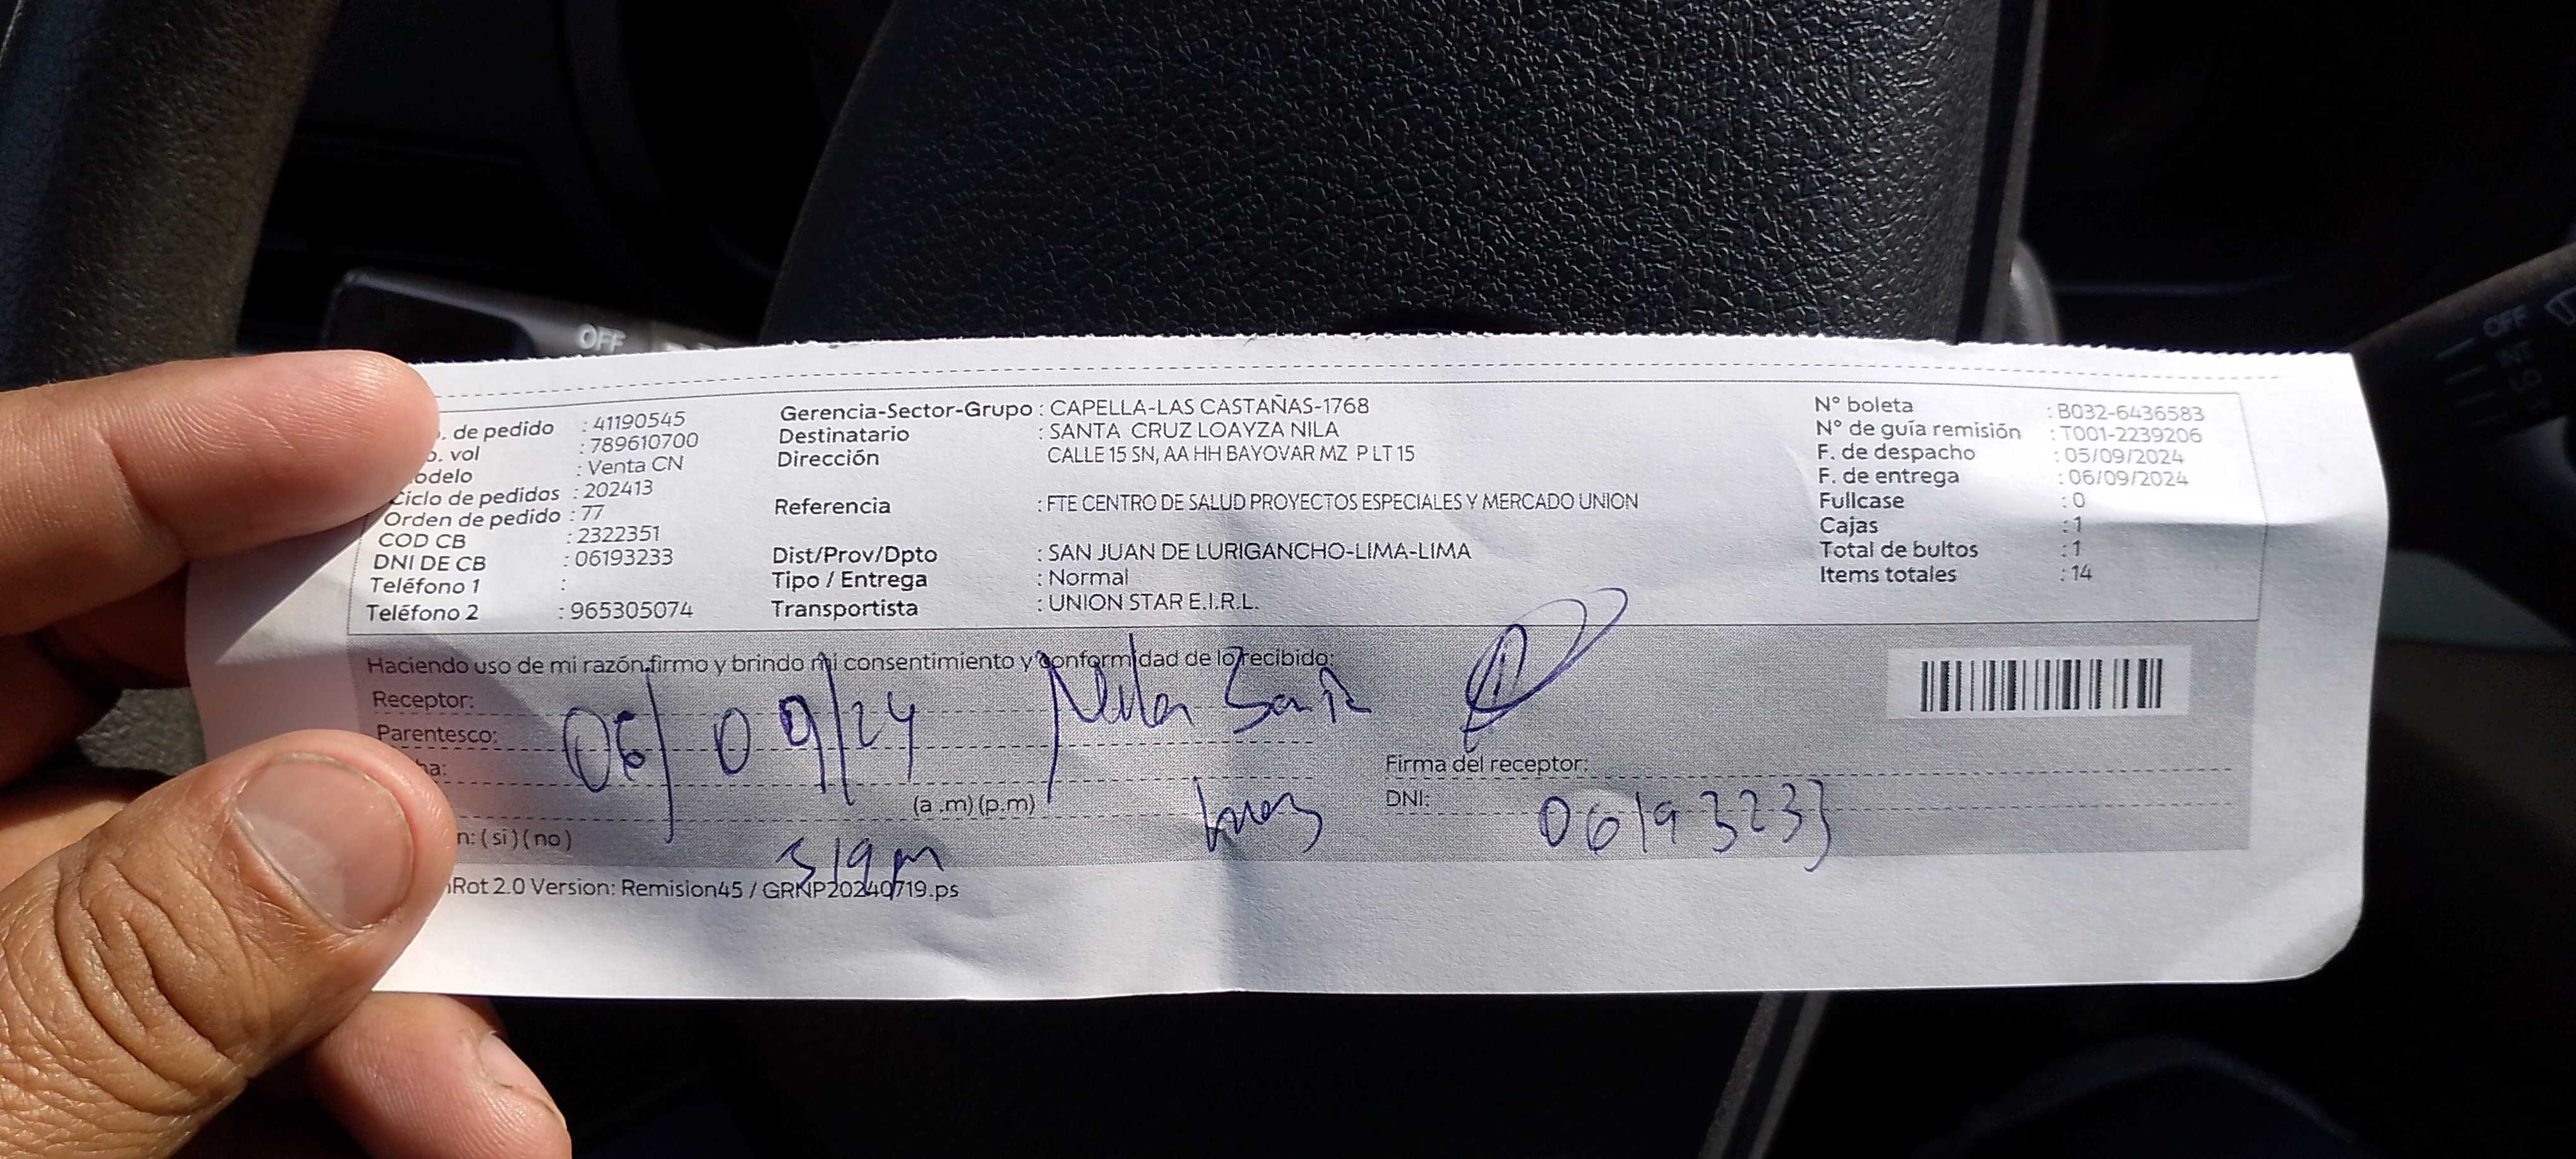 OFF
OFF
INT
. de pedido : 41190545
o. vol : 789610700
odelo : Venta CN
Ciclo de pedidos : 202413
Orden de pedido : 77
COD CB : 2322351
DNI DE CB : 06193233
Teléfono 1 :
Teléfono 2 : 965305074
Gerencia-Sector-Grupo : CAPELLA-LAS CASTAÑAS-1768
Destinatario : SANTA CRUZ LOAYZA NILA
Dirección CALLE 15 SN, AA HH BAYOVAR MZ P LT 15
Referencia : FTE CENTRO DE SALUD PROYECTOS ESPECIALES Y MERCADO UNION
Dist/Prov/Dpto : SAN JUAN DE LURIGANCHO-LIMA-LIMA
Tipo / Entrega : Normal
Transportista : UNION STAR E.I.R.L.
N° boleta : B032-6436583
N° de guía remisión : T001-2239206
F. de despacho : 05/09/2024
F. de entrega : 06/09/2024
Fullcase : 0
Cajas : 1
Total de bultos : 1
Items totales : 14
Haciendo uso de mi razón firmo y brindo mi consentimiento y conformidad de lo recibido:
Receptor:
Parentesco: 06/09/24 Nila
ha:
(a .m) (p.m)
n: ( si ) ( no )
Firma del receptor:
DNI: 06193233
Rot 2.0 Version: Remision45 / GRNP20240719.ps